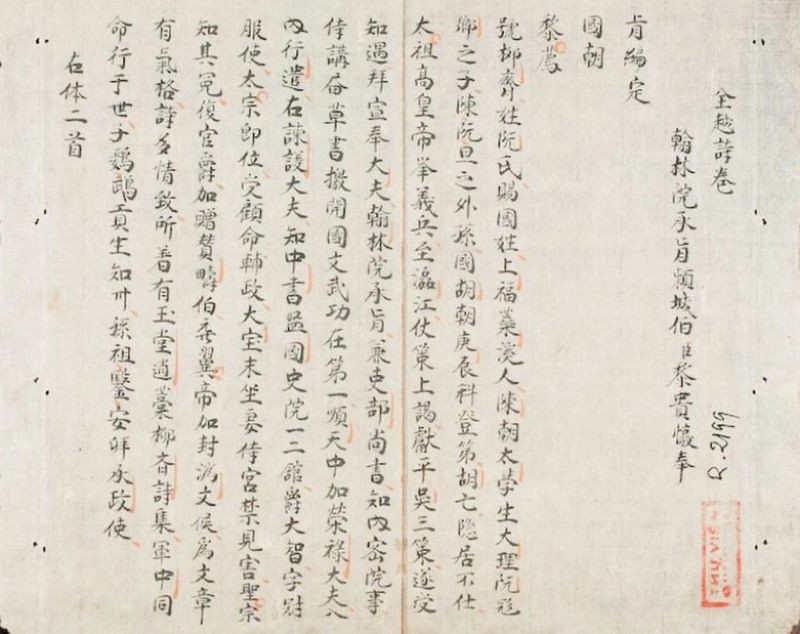 全越詩卷
翰林院承旨穎城伯臣黎貴惇奉
旨編定
國朝
黎廌
號抑齋姓阮氏賜國姓上福蘂溪人陳朝太學生大理阮飛
卿之子陳阮旦之外孫國胡朝庚辰科登第胡亡隱居不仕
太祖高皇帝举義兵至瀘江仗策上謁獻平吳三策遂受
知遇拜宣奉大夫翰林院承旨兼吏部尚書知內密院事
侍講屡草書檄開國文武功在第一順天中加荣祿大夫入
內行遣右諫議大夫知中書監國史院一二館爵大智字封
服使太宗即位受顧命輔政大宝末坐妾侍宮禁見害聖宗
知其冤復官爵加贈賛疇伯翼帝加封濟文侯為文章
有氣格詩多情致所著有玉堂遺藁抑斉詩集軍中同
命行于世子鸚鵡貢生知州孫祖鑒安邦承政使
古体二首
R.2199